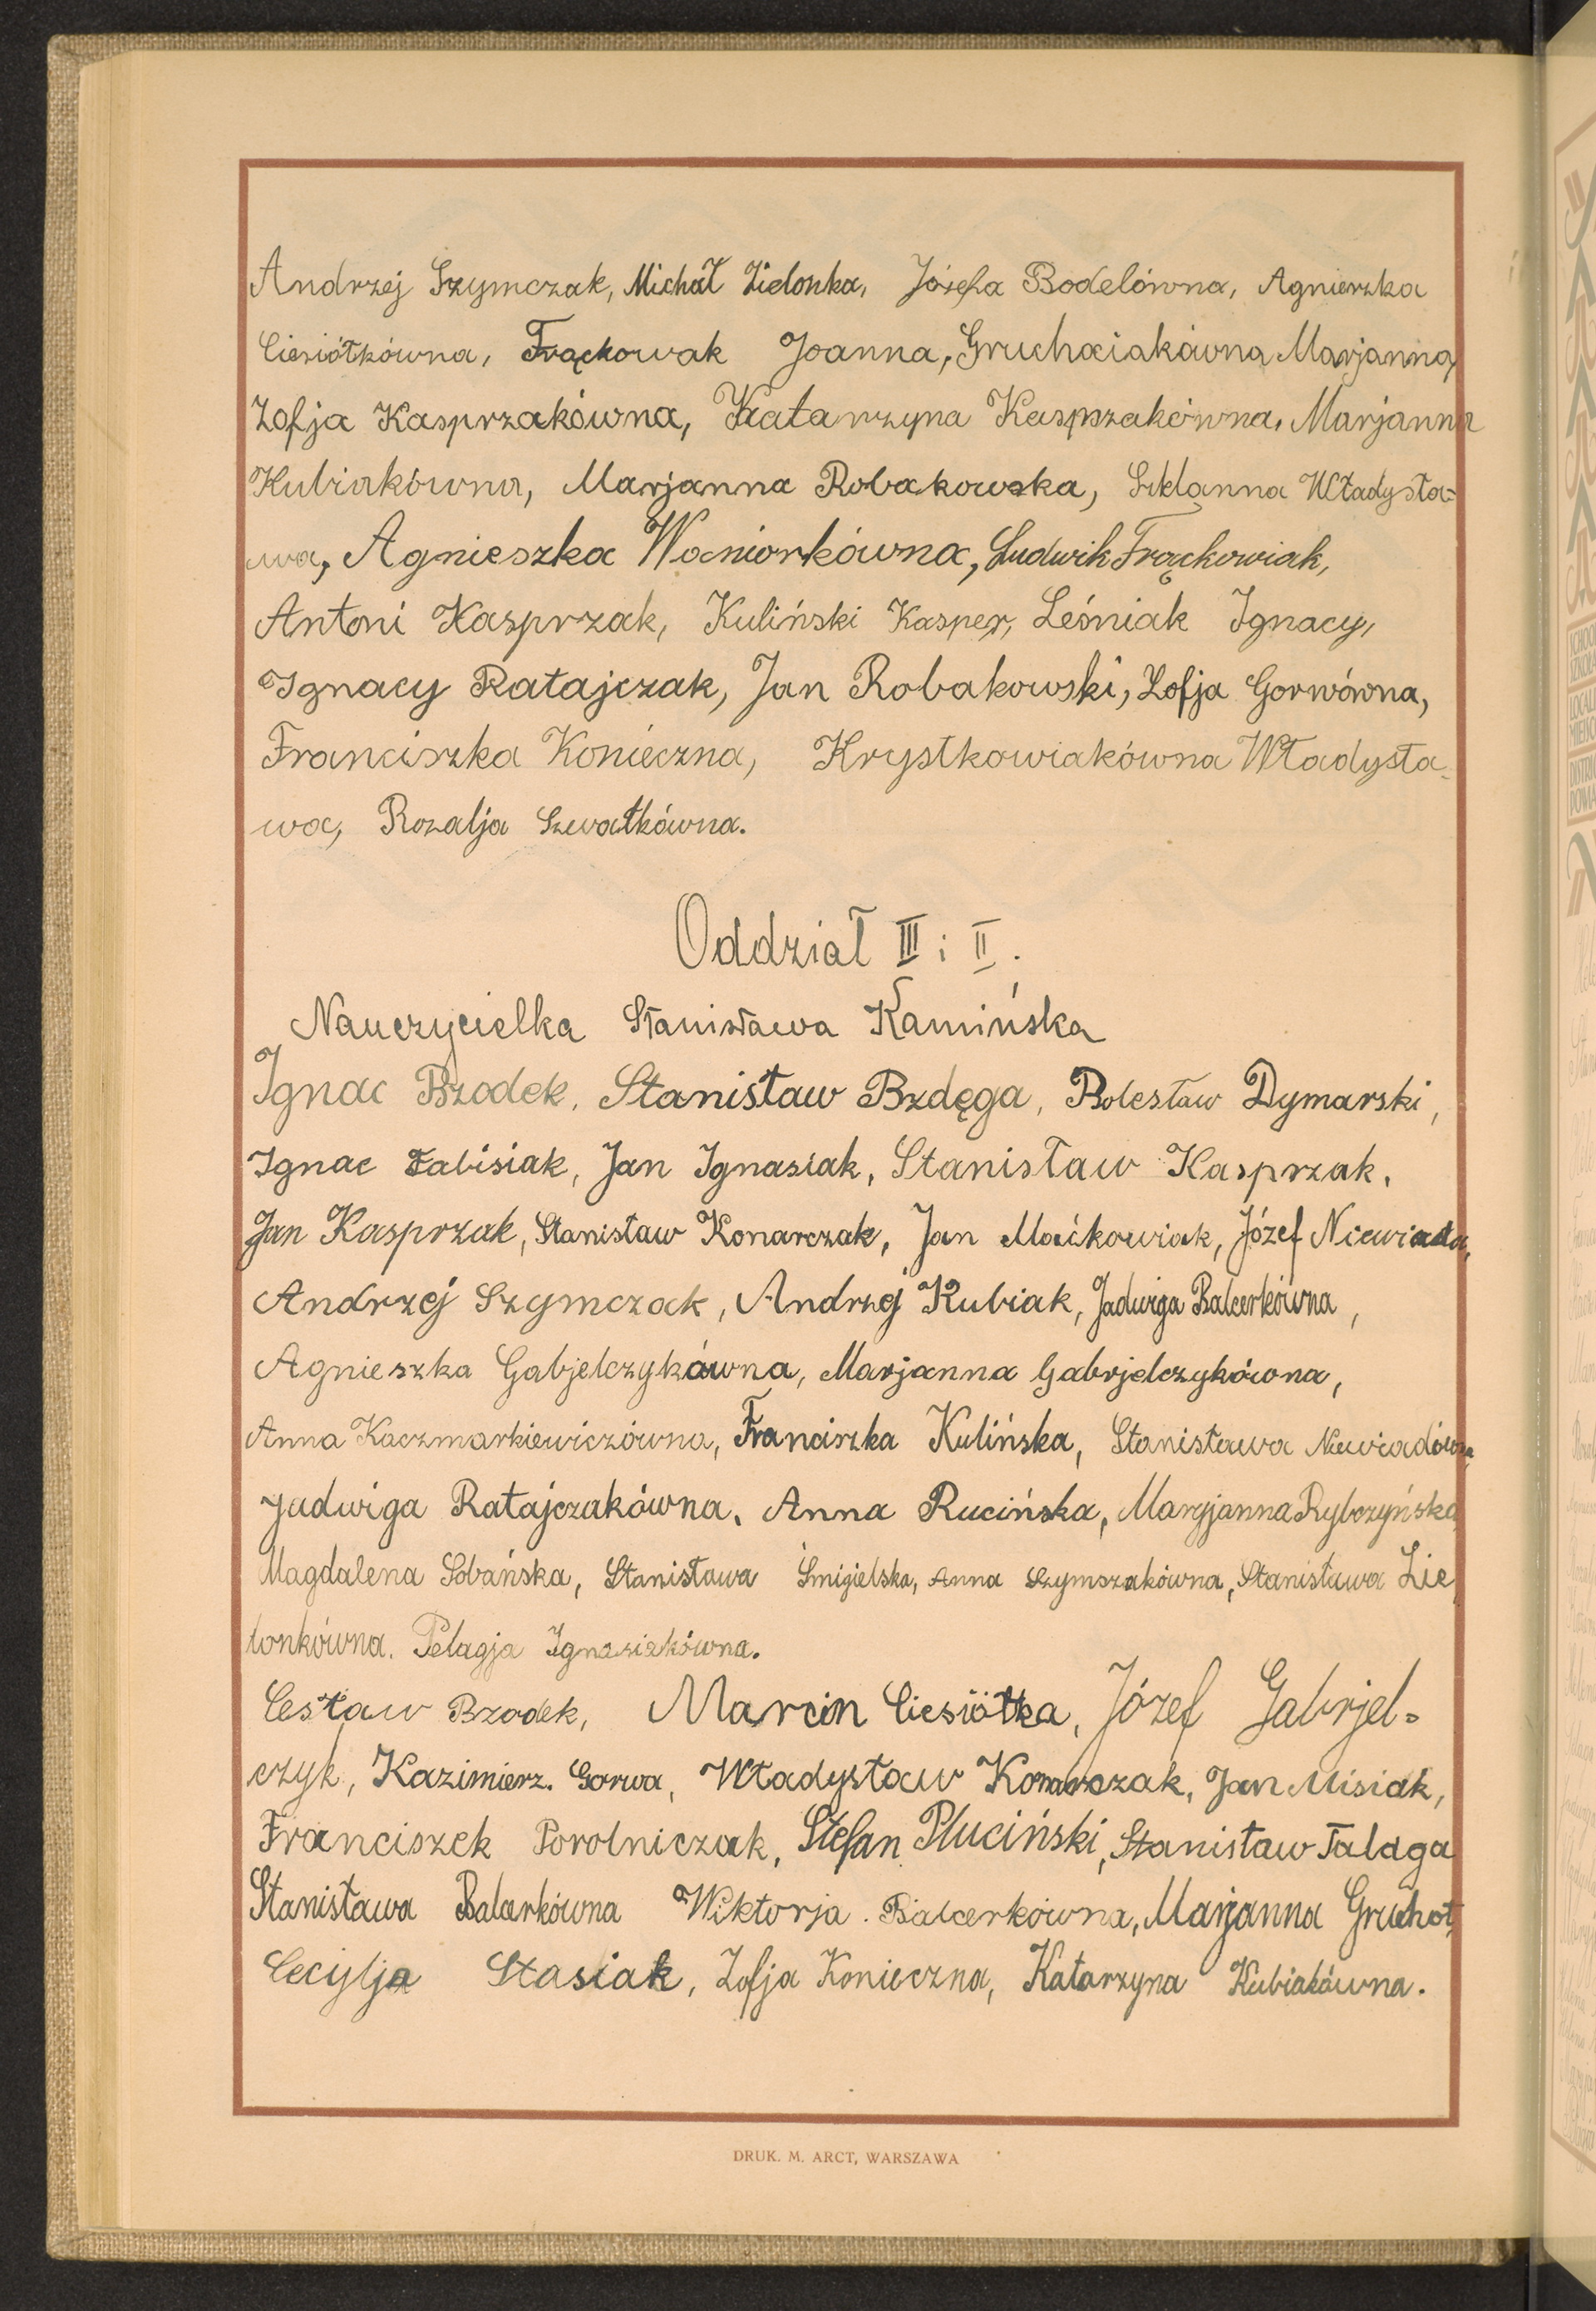 Andrzej Szymczak, Michał Zielonka, Józefa Bodelówna, Agnieszka
Ciesiółkówna, Frąckowak Joanna, Gruchaciakówna Marjanna,
Zofja Kasprzakówna, Katarzyna Kaspszakówna, Marjanna
Kubiakówna, Marjanna Robakowska, Szklanna Władysła=
wa, Agnieszka Wocniorkówna, Ludwik Frąckowiak,
Antoni Kasprzak, Kuliński Kasper, Leśniak Ignacy,
Ignacy Ratajczak, Jan Robakowski, Zofja Gorwówna,
Franciszka Konieczna, Krystkowiakówna Władysła-
wa, Rozalja Szwatkówna.
Oddział III i II.
Nauczycielka Stanisława Kamińska
Ignac Bzodek, Stanisław Bzdęga, Bolesław Dymarski,
Ignac Fabisiak, Jan Ignasiak, Stanisław Kasprzak,
Jan Kasprzak, Stanisław Konarczak, Jan Maćkowiak, Józef Niewiada,
Andrzej Szymczak, Andrzej Kubiak, Jadwiga Balcerkówna,
Agnieszka Gabjelczykówna, Marjanna Gabrjelczykówna,
Anna Kaczmarkiewiczówna, Franciszka Kulińska, Stanisława Niewiadówna,
Jadwiga Ratajczakówna, Anna Rucińska, Maryjanna Rybczyńska,
Magdalena Sobańska, Stanisława Śmigielska, Anna Szymszakówna, Stanisława Zie
lonkówna. Pelagja Ignasiakówna.
Cesław Bzodek, Marcin Ciesiółka, Józef Gabrjel-
czyk, Kazimierz. Gorwa, Władysław Konarczak, Jan Misiak,
Franciszek Porolniczak, Stefan Pluciński, Stanisław Talaga
Stanisława Balcerkówna Wiktorja. Balcerkówna, Marjanna Gruchot,
Cecylja Stasiak, Zofja Konieczna, Katarzyna Kubiakówna.
DRUK. M. ARCT, WARSZAWA